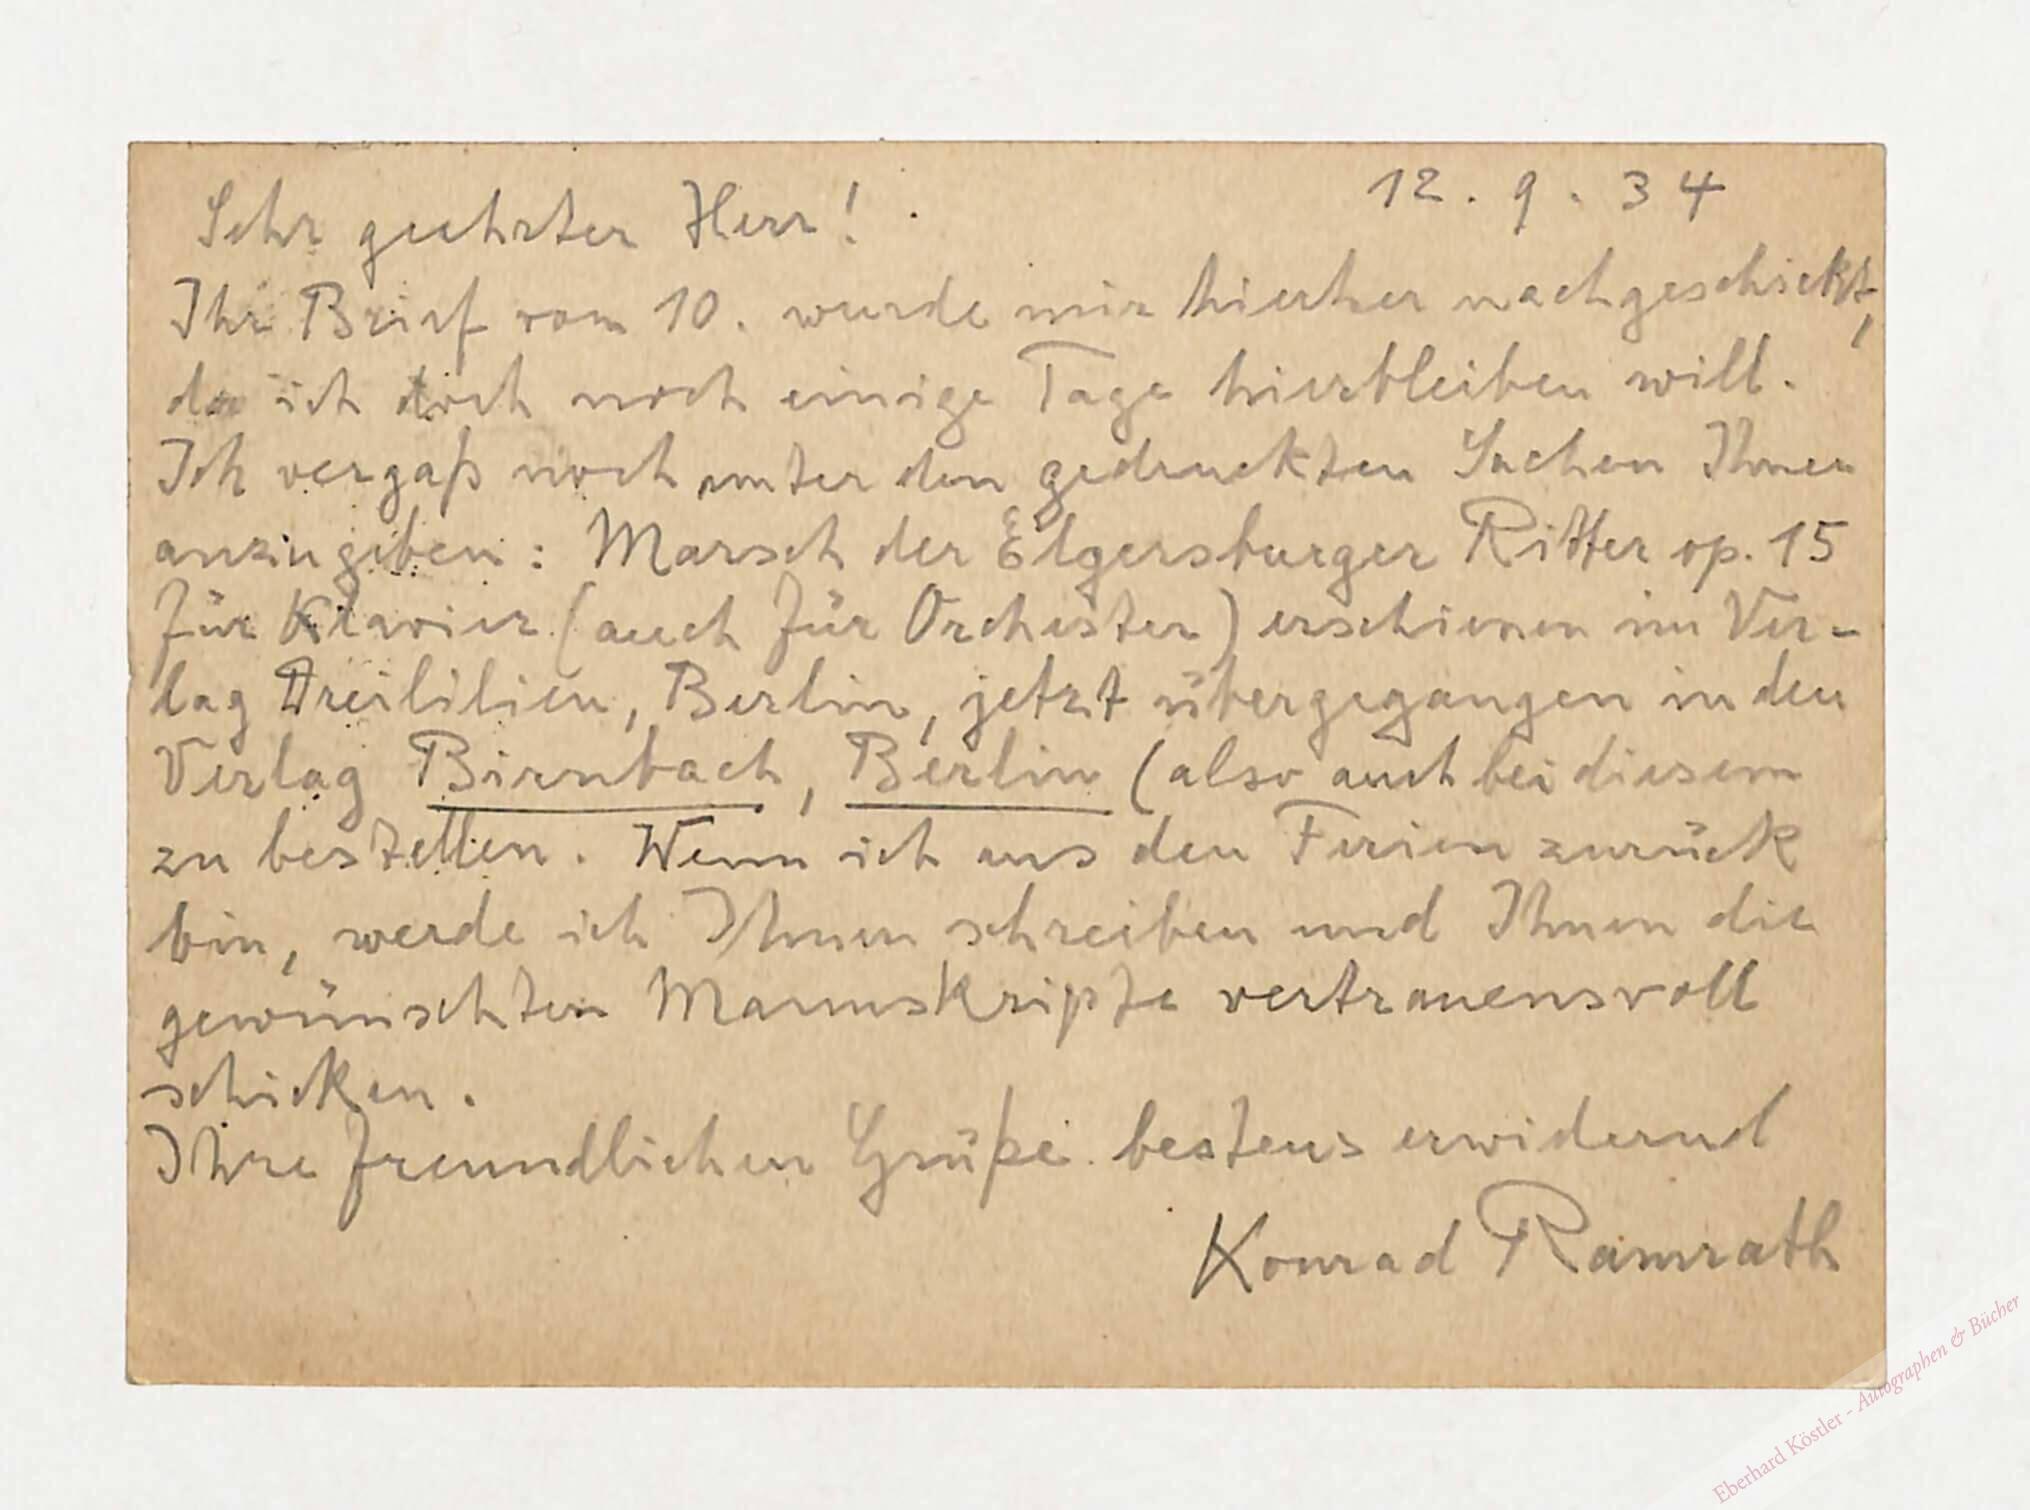 12. 9. 34
Sehr geehrter Herr!
Ihr Brief vom 10. wurde mir hierher nachgeschickt,
da ich doch noch einige Tage hierbleiben will.
Ich vergaß noch unter den gedruckten Sachen Ihnen
anzugeben: Marsch der Elgersburger Ritter op. 15
für Klavier (auch für Orchester) erschienen im Ver-
lag Dreililien, Berlin, jetzt übergegangen in den
Verlag Birnbach, Berlin (also auch bei diesem
zu bestellen. Wenn ich aus den Ferien zurück
bin, werde ich Ihnen schreiben und Ihnen die
gewünschten Manuskripte vertrauensvoll
schicken.
Ihre freundlichen Grüße bestens erwidernd
Konrad Ramrath
Eberhard Köstler - Autographen & Bücher